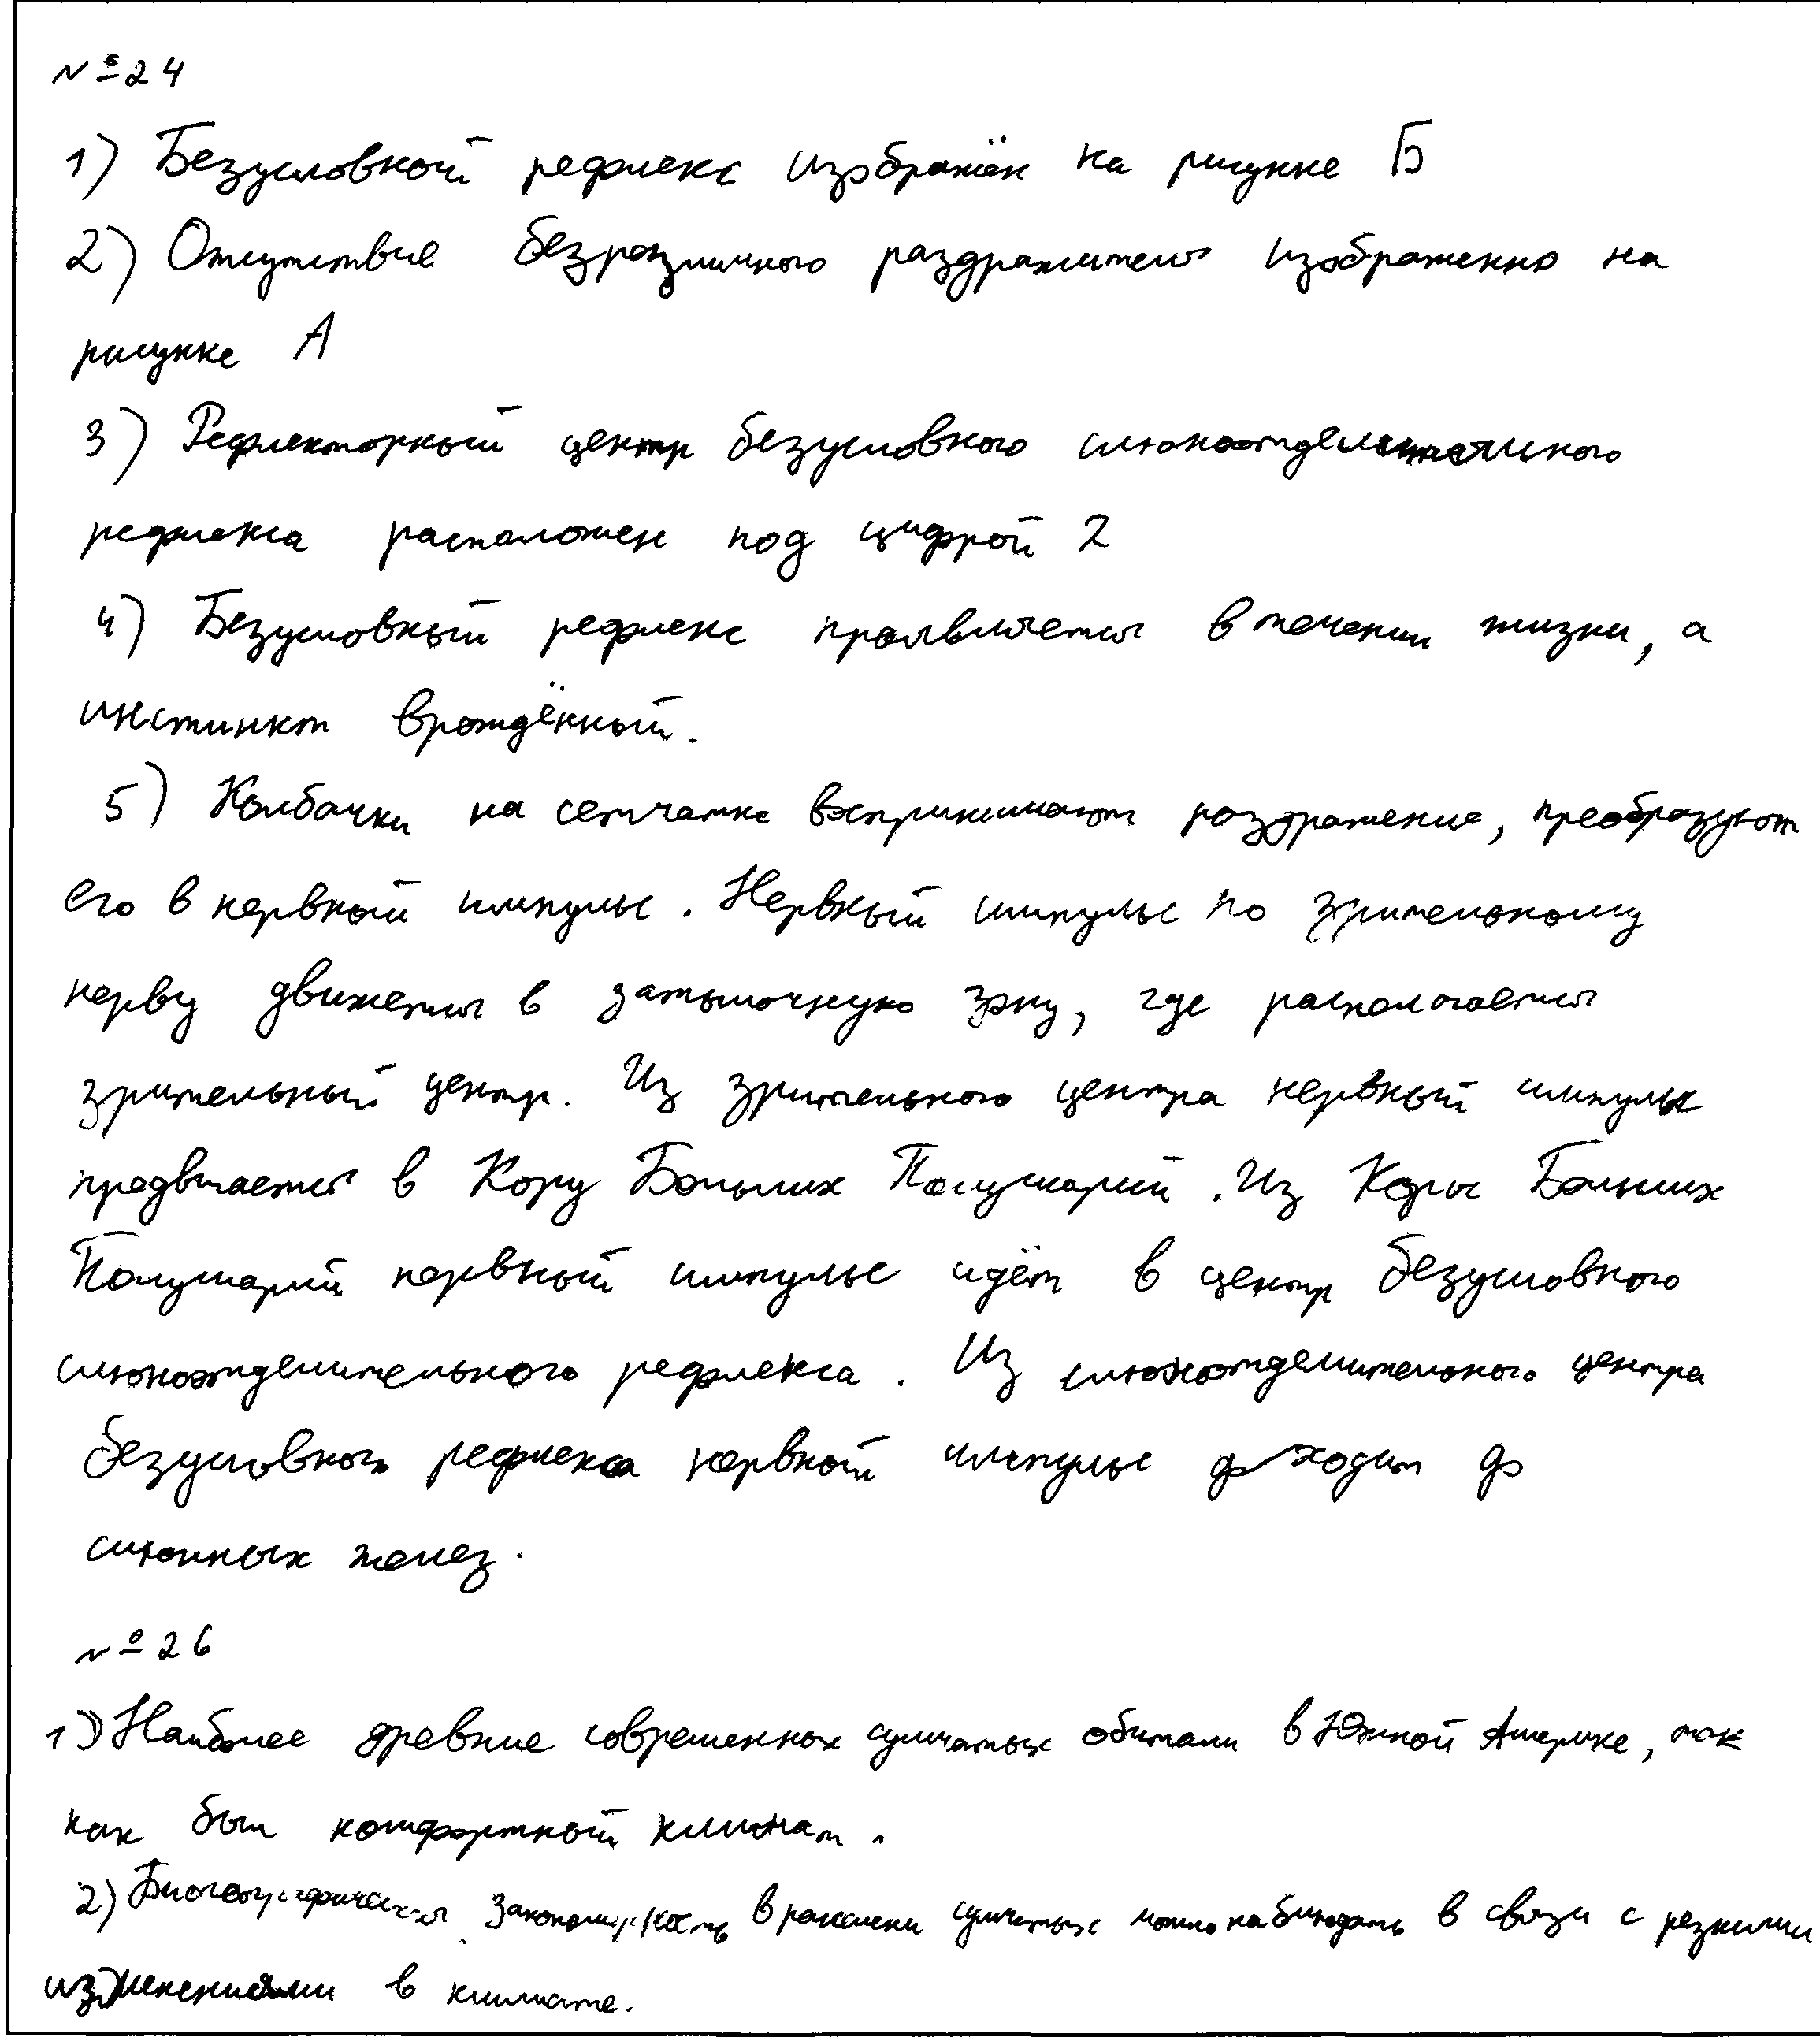 №24
1) Безусловный рефлекс изображён на рисунке Б
2) Отсутствие безразличного раздражителя изображенно на
рисунке А
3) Рефлекторный центр безусловного слюноотделительного
рефлекса расположен под цифрой 2
4) Безусловный рефлекс проявляется в течении жизни, а
инстинкт врождённый.
5) Колбочки на сетчатке воспринимают раздражение, преобразуют
его в нервный импульс. Нервный импульс по зрительному
нерву движется в затылочную зону, где располагается
зрительный центр. Из зрительного центра нервный импульс
продвигается в Кору Больших Полушарий. Из Коры Больших
Полушарий нервный импульс идёт в центр безусловного
слюноотделительного рефлекса. Из слюноотделительного центра
безусловного рефлекса нервный импульс доходит до
слюнных желез.
№26
1) Наиболее древние современных сумчатых обитали в Южной Америке, так
как был комфортный климат.
2) Биогеографическая закономерность в расселени сумчатых можно наблюдать в связи с резкими
изменениями в климате.